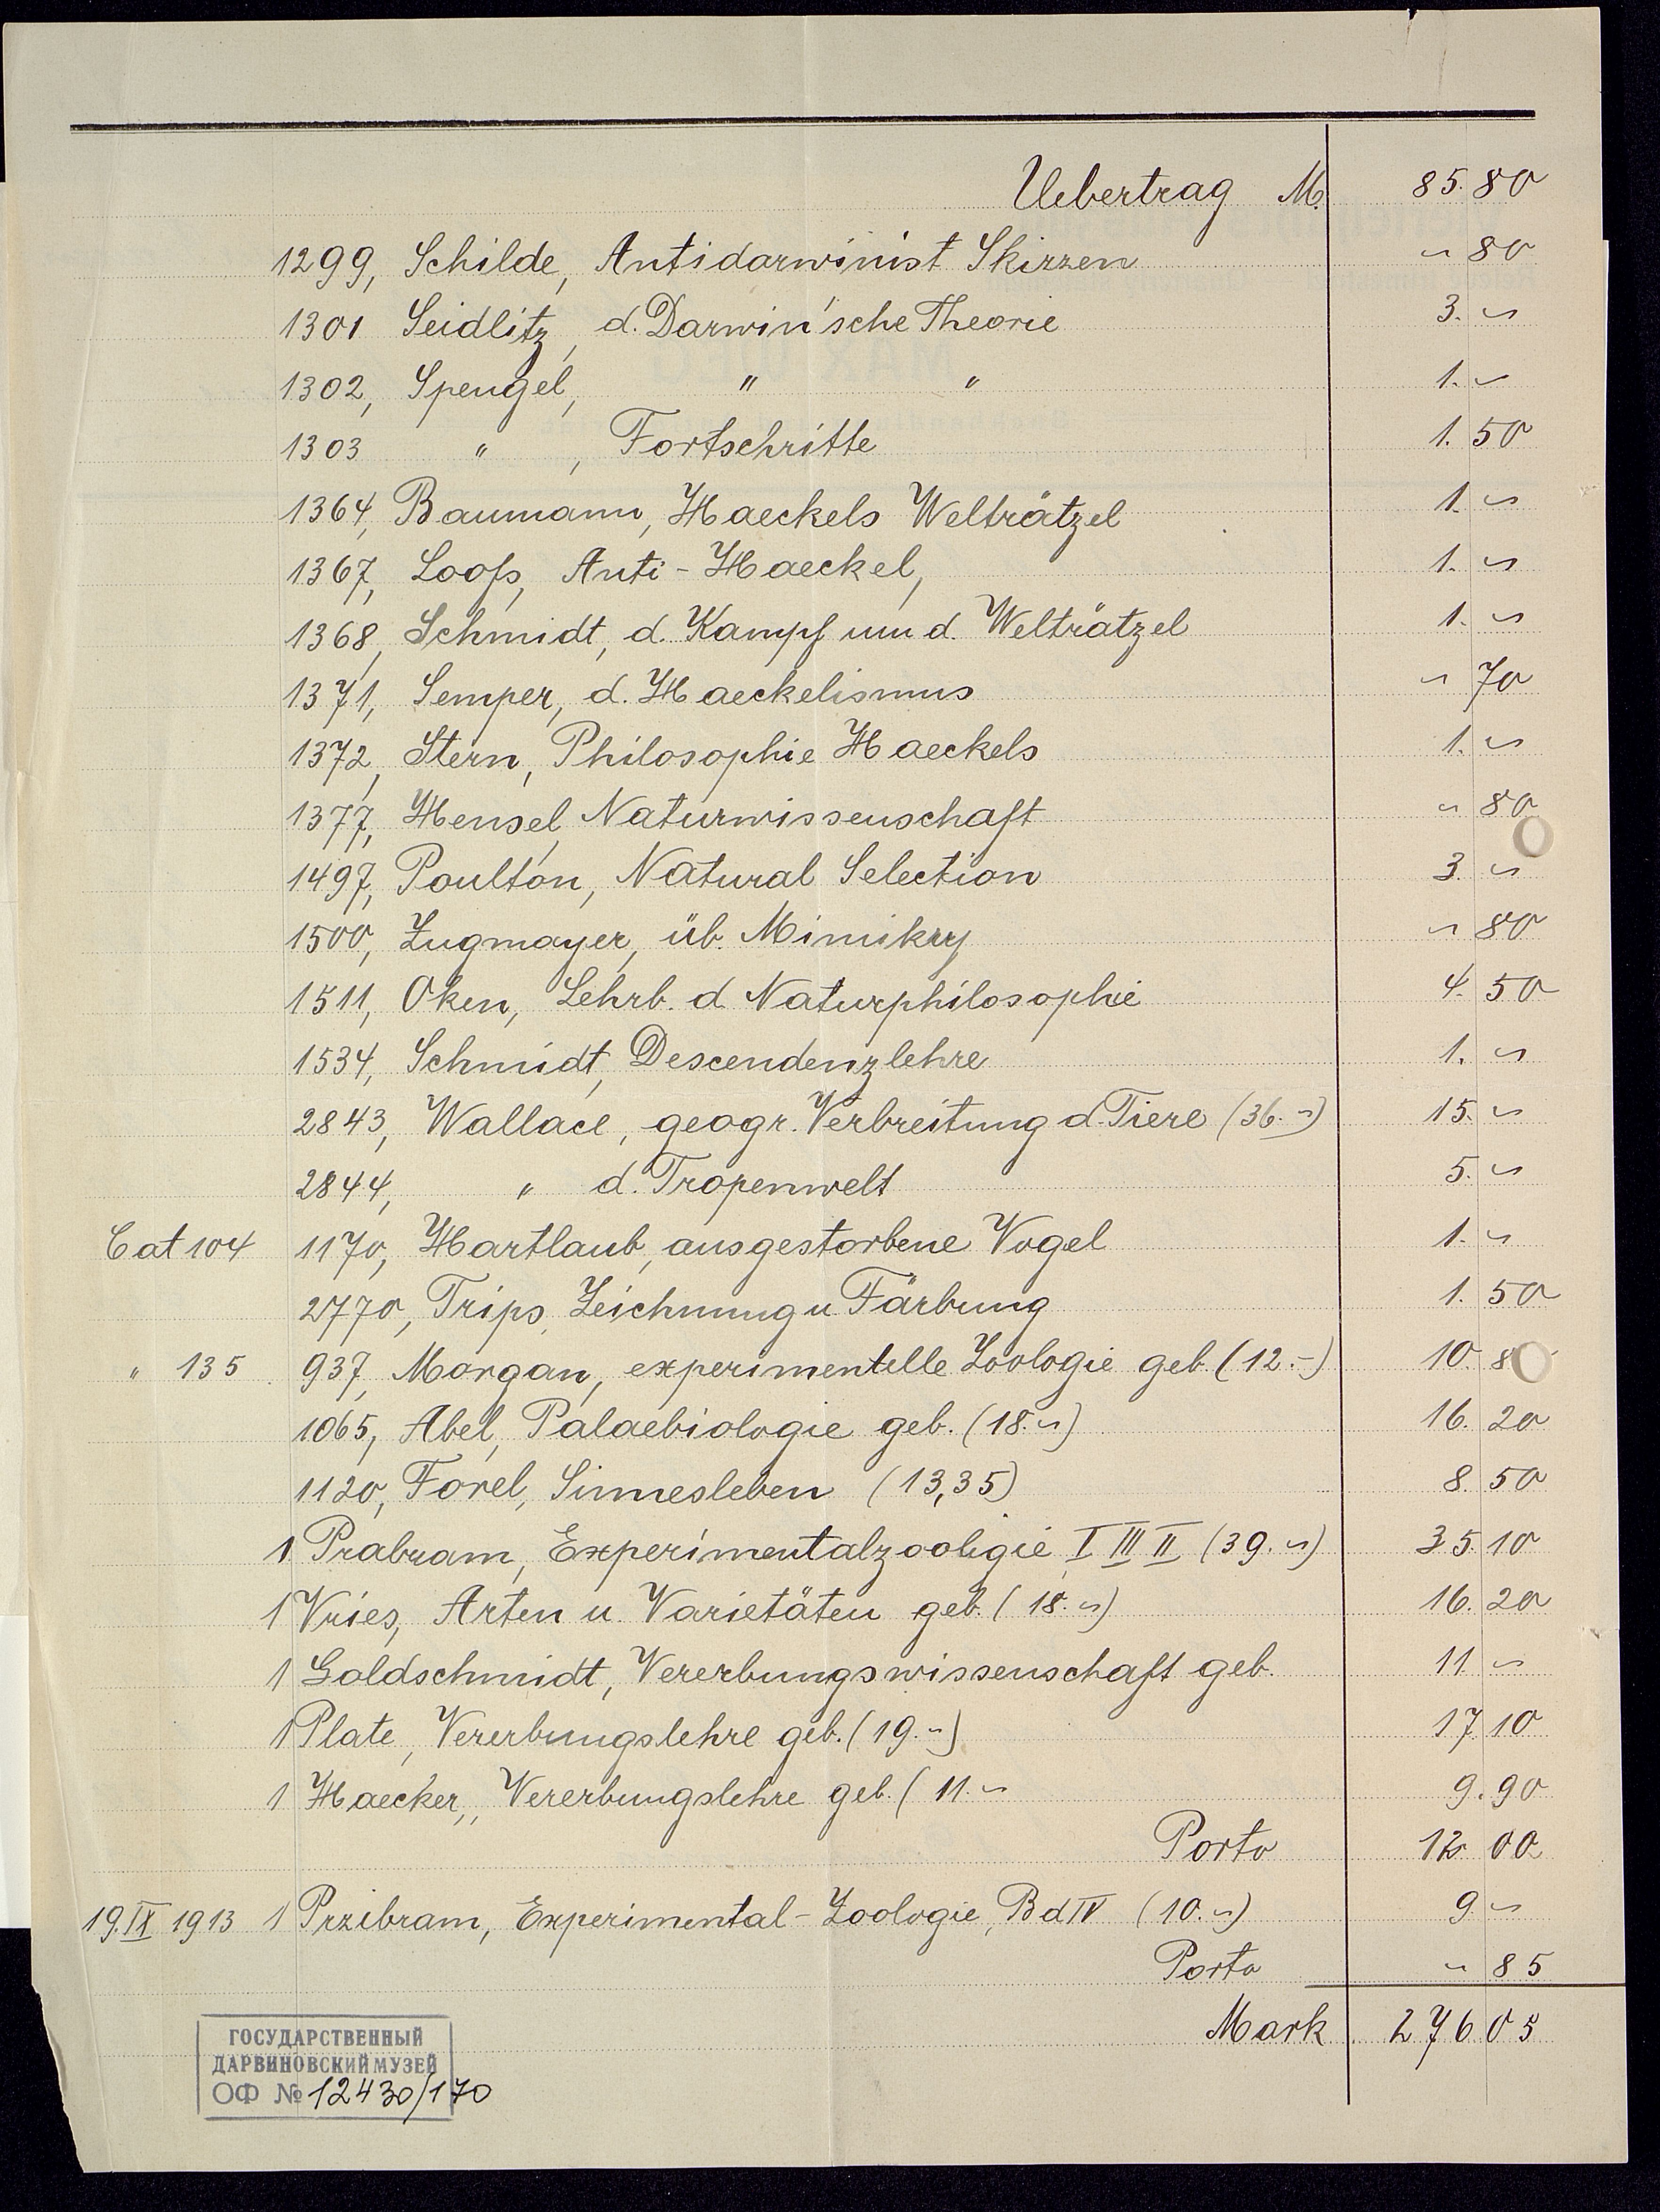 Uebertrag M. 85.80
1299, Schilde, Antidarwinist Skizzen ~ 80
1301 Seidlitz, d. Darwin'sche Theorie 3. ~
1302, Spengel, " " 1. ~
1303 " , Fortschritte 1. 50
1364, Baumann, Haeckels Welträtzel 1. ~
1367, Loofs, Anti-Haeckel, 1. ~
1368, Schmidt, d. Kampf um d. Welträtzel 1. ~
1371, Semper, d. Haeckelismus ~ 70
1372, Stern, Philosophie Haeckels 1. ~
1377, Hensel, Naturwissenschaft ~ 80
1497, Poulton, Natural Selection 3. ~
1500, Zugmayer, üb. Mimikry ~ 80
1511, Oken, Lehrb. d Naturphilosophie 4. 50
1534, Schmidt, Descendenzlehre 1. ~
2843, Wallace, geogr. Verbreitung d. Tiere (36.~) 15. ~
2844, " d. Tropenwelt 5. ~
Cat 104 1170, Hartlaub, ausgestorbene Vogel 1. ~
2770, Trips, Zeichnung u Färbung 1. 50
" 135 937, Morgan, experimentelle Zoologie geb. (12.-) 10. 80
1065, Abel, Palaebiologie geb. (18.~) 16. 20
1120, Forel, Sinnesleben (13,35) 8. 50
1 Prabram, Experimentalzooligie I III II (39.~) 35. 10
1 Vries, Arten u. Varietäten geb. (18.~) 16. 20
1 Goldschmidt, Vererbungswissenschaft geb. 11 ~
1 Plate, Vererbungslehre geb. (19.~) 17 10
1 Haecker,, Vererbungslehre geb. (11.~ 9.90
Porto 12 00
19.IX 1913 1 Przibram, Experimental-Zoologie, Bd IV (10.~) 9. ~
Porto ~ 85
Mark 276 05
ГОСУДАРСТВЕННЫЙ
ДАРВИНОВСКИЙ МУЗЕЙ
ОФ № 12430/170